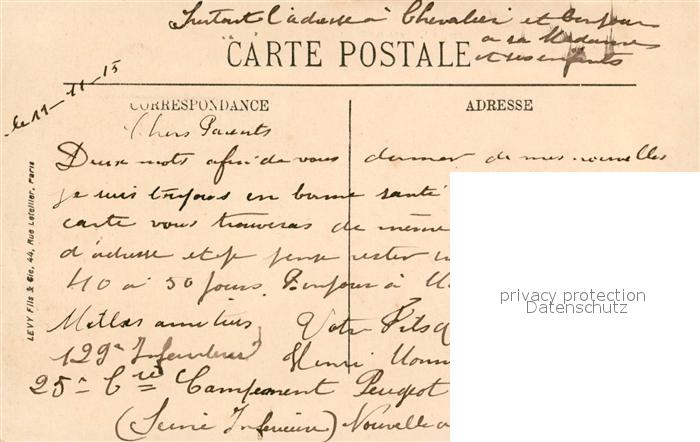 Surtout l'adresse à Chevalier et bonjour
à sa Madame
et ses enfants
CARTE POSTALE
le 11-11-15
CORRESPONDANCE
ADRESSE
Chers Parents
Deux mots afin de vous donner de mes nouvelles
je suis toujours en bonne santé
carte vous trouveras de même
d'adresse et je pense rester
40 à 50 jours. Bonjour à
Meilleurs amitiés Votre Fils
129e Infanterie Henri
25e Cie Campement Peugeot
(Seine Inferieure) Nouvelle
LEVY Fils & Cie, 44, Rue Letellier, Paris
privacy protection
Datenschutz